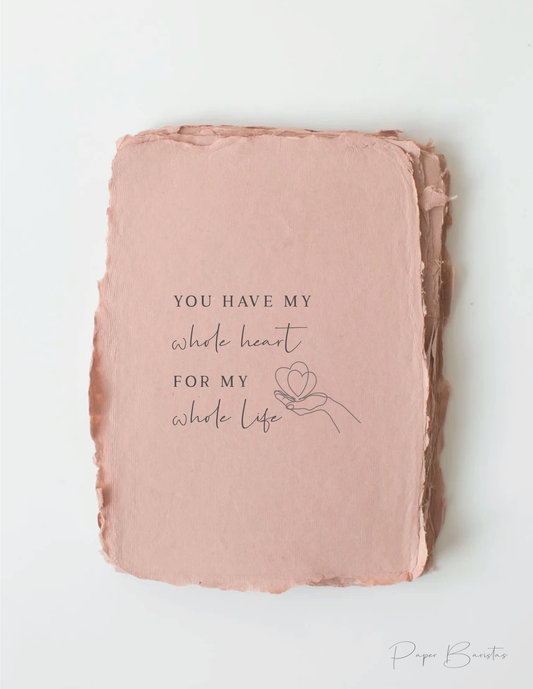 YOU HAVE MY
whole heart
FOR MY
whole life
Paper Baristas